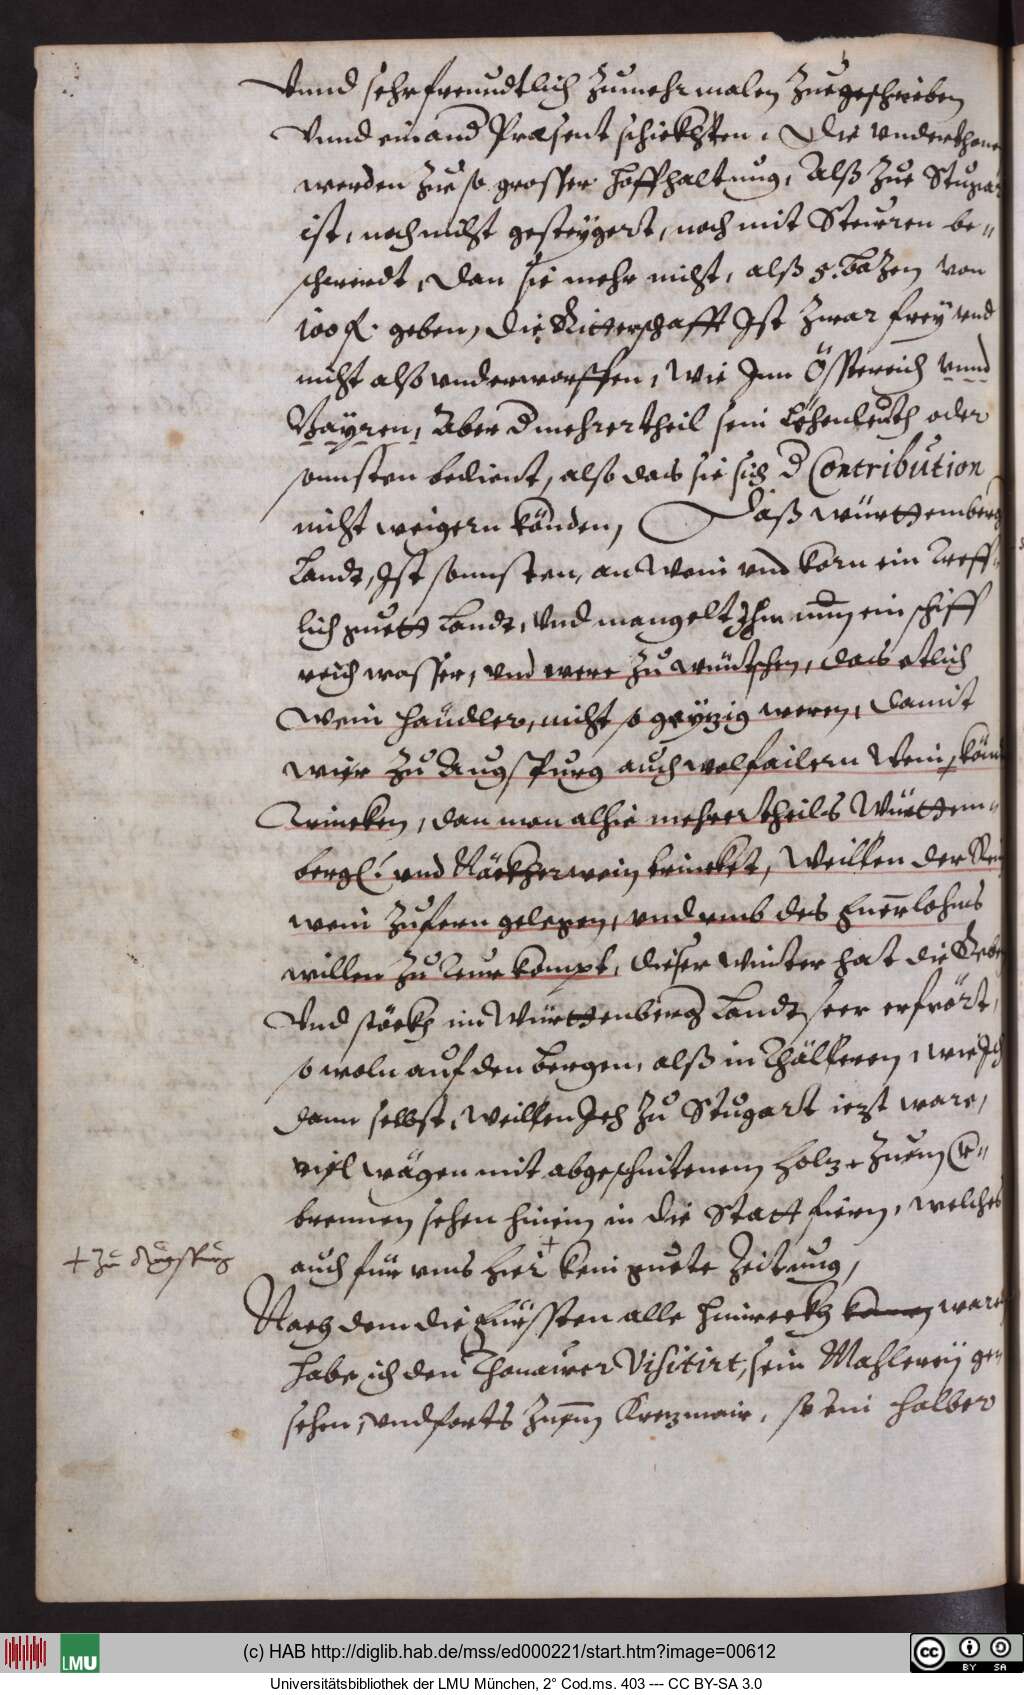 Vnnd sehr freundtlich zumehrmalen zuegeschriben
Vnnd einand Præsent schickhten. Die vnderthone
werden zue so grosser hoffhaltung, Alß zue Stugart
ist, noch nicht gesteygert, noch mit Steuren be-
schwerdt, dan sie mehr nicht, alß 5. bazen von
100 fl. geben, die Ritterschafft Ist zwar frey vnd
nicht also vnderworffen, wie Inn Össterreich vnnd
Bayren, Aber d mehrertheil sein Lehenleuth oder
sonnsten bedient, also das sie sich d Contribution
nicht weigern könden, Daß württemberg
Landt, Ist sonnsten, an Wein vnd korn ein treff-
lich guett Landt, vnd mangelt Ihm nun ein schiff
reich wasser, vnd were zu wüntschen, das etlich
Wein händler, nicht so geyzig weren, damit
wier zu Augspurg auch wolfailern Wein, könd
Trincken, dan man alhie mehrertheils Württem-
bergl: vnd Näckherwein trincket, Weillen der Rein
wein zu fern gelegen, vnd vmb des Fuerlohns
willen zu teur kompt, dieser winter hat die Rebe
Vnd stöckh im Württenberg Landt seer erfrört,
so woln auf den bergen, alß in Thälleren, wie Ich
dann selbst, Weillen Ich zu Stugart iezt ware,
viel wägen mit abgeschnitenem holz, zuem ver-
brennen sehen hinein in die Statt füern, welches
auch für vns hier + kein guete Zeitung,
+ zu Augspurg
Nach dem die Fürssten alle hinweckh komen waren
habe ich den Thonawer Visitirt, sein Mahlereÿ ge-
sehen, vnd forts zuem Krezmair, so ein halber
(c) HAB http://diglib.hab.de/mss/ed000221/start.htm?image=00612
LMU
CC BY SA
Universitätsbibliothek der LMU München, 2° Cod.ms. 403 --- CC BY-SA 3.0